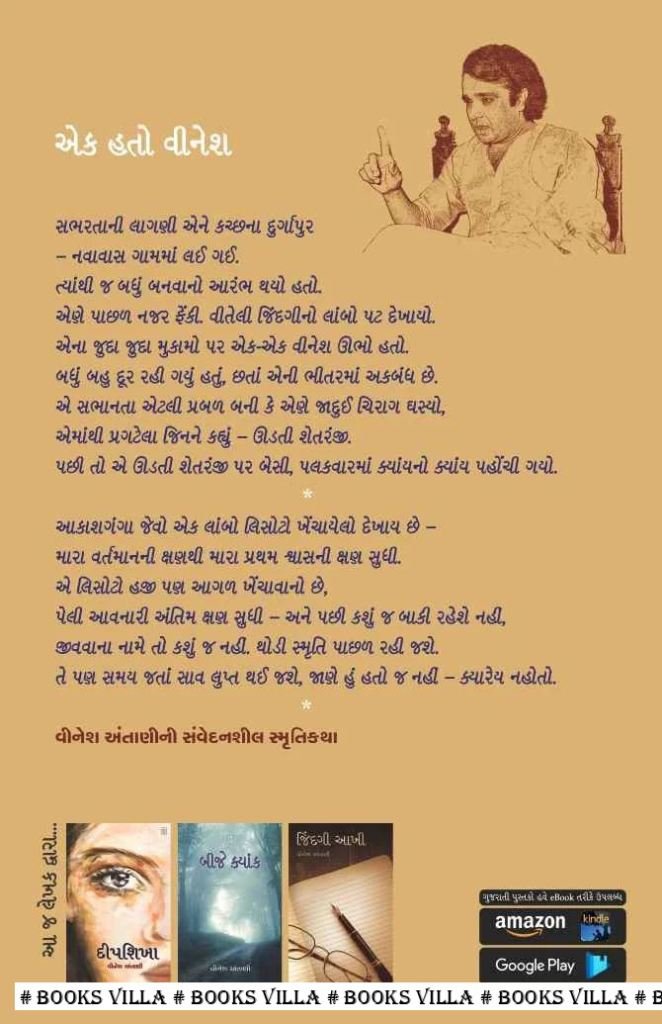 એક હતો વીનેશ
સભરતાની લાગણી એને કચ્છના દુર્ગાપુર
– નવાવાસ ગામમાં લઈ ગઈ.
ત્યાંથી જ બધું બનવાનો આરંભ થયો હતો.
એણે પાછળ નજર ફેંકી. વીતેલી જિંદગીનો લાંબો પટ દેખાયો.
એના જુદા જુદા મુકામો પર એક-એક વીનેશ ઊભો હતો.
બધું બહુ દૂર રહી ગયું હતું, છતાં એની ભીતરમાં અકબંધ છે.
એ સભાનતા એટલી પ્રબળ બની કે એણે જાદુઈ ચિરાગ ઘસ્યો,
એમાંથી પ્રગટેલા જિનને કહ્યું – ઊડતી શેતરંજી.
પછી તો એ ઊડતી શેતરંજી પર બેસી, પલકવારમાં ક્યાંયનો ક્યાંય પહોંચી ગયો.
*
આકાશગંગા જેવો એક લાંબો લિસોટો ખેંચાયેલો દેખાય છે –
મારા વર્તમાનની ક્ષણથી મારા પ્રથમ શ્વાસની ક્ષણ સુધી.
એ લિસોટો હજી પણ આગળ ખેંચાવાનો છે,
પેલી આવનારી અંતિમ ક્ષણ સુધી – અને પછી કશું જ બાકી રહેશે નહીં,
જીવવાના નામે તો કશું જ નહીં. થોડી સ્મૃતિ પાછળ રહી જશે.
તે પણ સમય જતાં સાવ લુપ્ત થઈ જશે, જાણે હું હતો જ નહીં – ક્યારેય નહોતો.
*
વીનેશ અંતાણીની સંવેદનશીલ સ્મૃતિકથા
આ જ લેખક દ્વારા...
દીપશિખા
વીનેશ અંતાણી
બીજે ક્યાંક
વીનેશ અંતાણી
જિંદગી આખી
વીનેશ અંતાણી
ગુજરાતી પુસ્તકો હવે eBook તરીકે ઉપલબ્ધ
amazon kindle
Google Play
# BOOKS VILLA # BOOKS VILLA # BOOKS VILLA # BOOKS VILLA # B